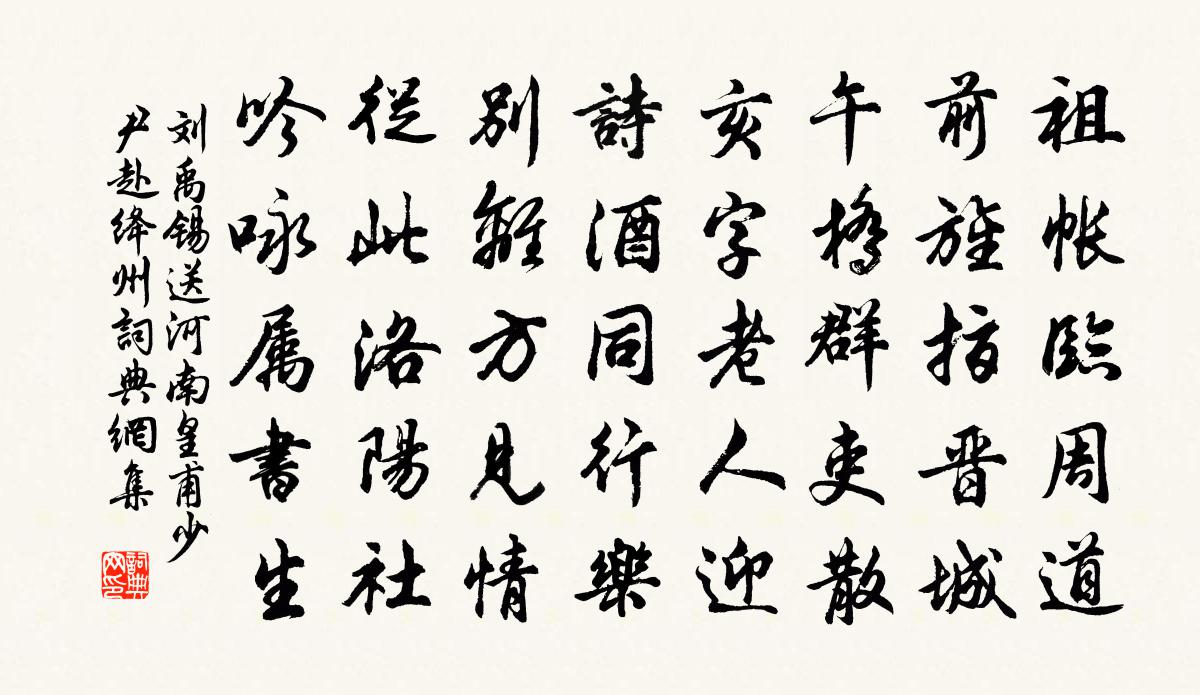 祖帳臨周道
前旌指晋城
午橋群吏散
亥字老人迎
詩酒同行樂
別離方見情
從此洛陽社
吟咏属書生
刘禹锡送河南皇甫少
尹赴绛州詞典網集
詞典网印